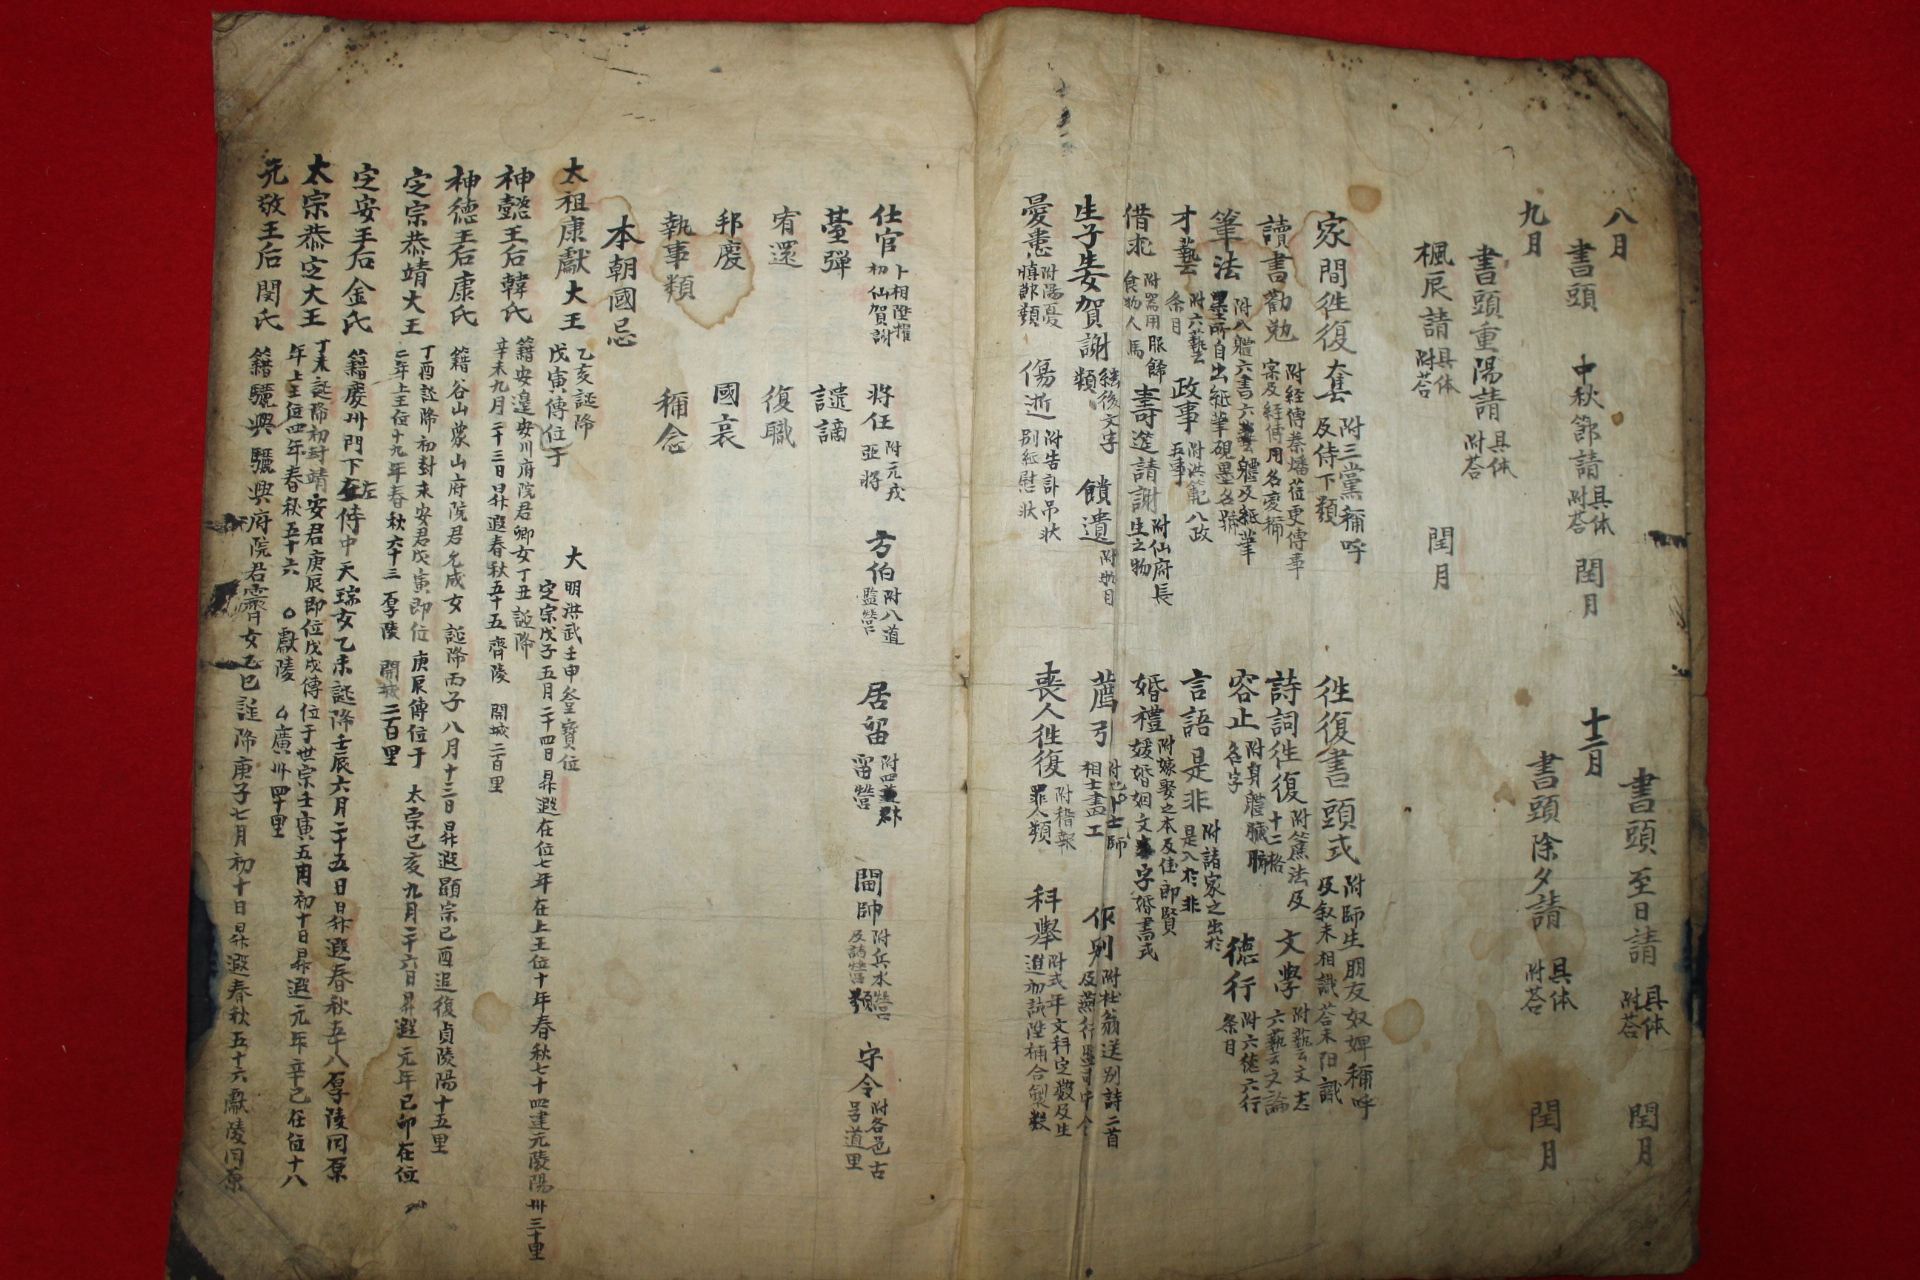 八月
書頭 中秋節請 具体 附荅 閏月
九月
書頭重陽請 具体 附荅
楓辰請 具体 附荅 閏月
書頭至日請 具体 附荅 閏月
十二月
書頭除夕請 具体 附荅 閏月
家間徃復套 附三黨稱呼及侍下類 徃復書頭式 附師生朋友奴婢稱呼及叙未相識荅未相識
讀書勸勉 附經傳 詩詞徃復 附篇法及十二格 文學 附藝文志六藝文論
筆法 附八體六書 容止 附身體臟腑名字 德行 附六德六行条目
才藝 附六藝条目 政事 附洪範八政五事 言語是非 附諸家之出於是入於非
借求 附器用服餙食物人馬 壽筵請謝 附仙府長生之物 婚禮 附嫁娶之本及佳郎賢媛婚姻文字婚書式
生子生女賀謝 継後文字類 饋遺 附物目 薦引 相士畫工 作別 附杜翁送別詩二首
憂患 附陽憂慎節類 傷逝 附告訃吊狀別紙慰狀 喪人徃復 附稽報罪人類 科擧 附式年文科定數及生進初試陞補合製數
仕官 卜相陞擢初仙賀謝 將任 附元戎亞將 方伯 附八道監營 居留 附四郡留營 閫帥 附兵水營 守令 附各邑古号道里
臺彈 譴謫
宥還 復職
邦慶 國哀
執事類 稱念
本朝國忌
太祖康獻大王 乙亥誕降 大明洪武壬申登寶位戊寅傳位于定宗戊子五月二十四日昇遐在位七年在上王位十年春秋七十四建元陵陽州三十里
神懿王后韓氏 籍安邊安川府院君卿女丁丑誕降辛未九月二十三日昇遐春秋五十五齊陵 開城二百里
神德王后康氏 籍谷山象山府院君允成女誕降丙子八月十三日昇遐顯宗己酉追復貞陵陽十五里
定宗恭靖大王 丁酉誕降初封永安君戊寅即位庚辰傳位于太宗己亥九月二十六日昇遐元年己卯在位二年上王位十九年春秋六十三厚陵 開城二百里
定安王后金氏 籍慶州門下左侍中天瑞女乙未誕降壬辰六月二十五日昇遐春秋五十八厚陵同原
太宗恭定大王 丁未誕降初封靖安君庚辰即位戊戌傳位于世宗壬寅五月初十日昇遐元年辛巳在位十八年上王位四年春秋五十六 獻陵 廣州四十里
元敬王后閔氏 籍驪興驪興府院君霽女乙巳誕降庚子七月初十日昇遐春秋五十六獻陵同原